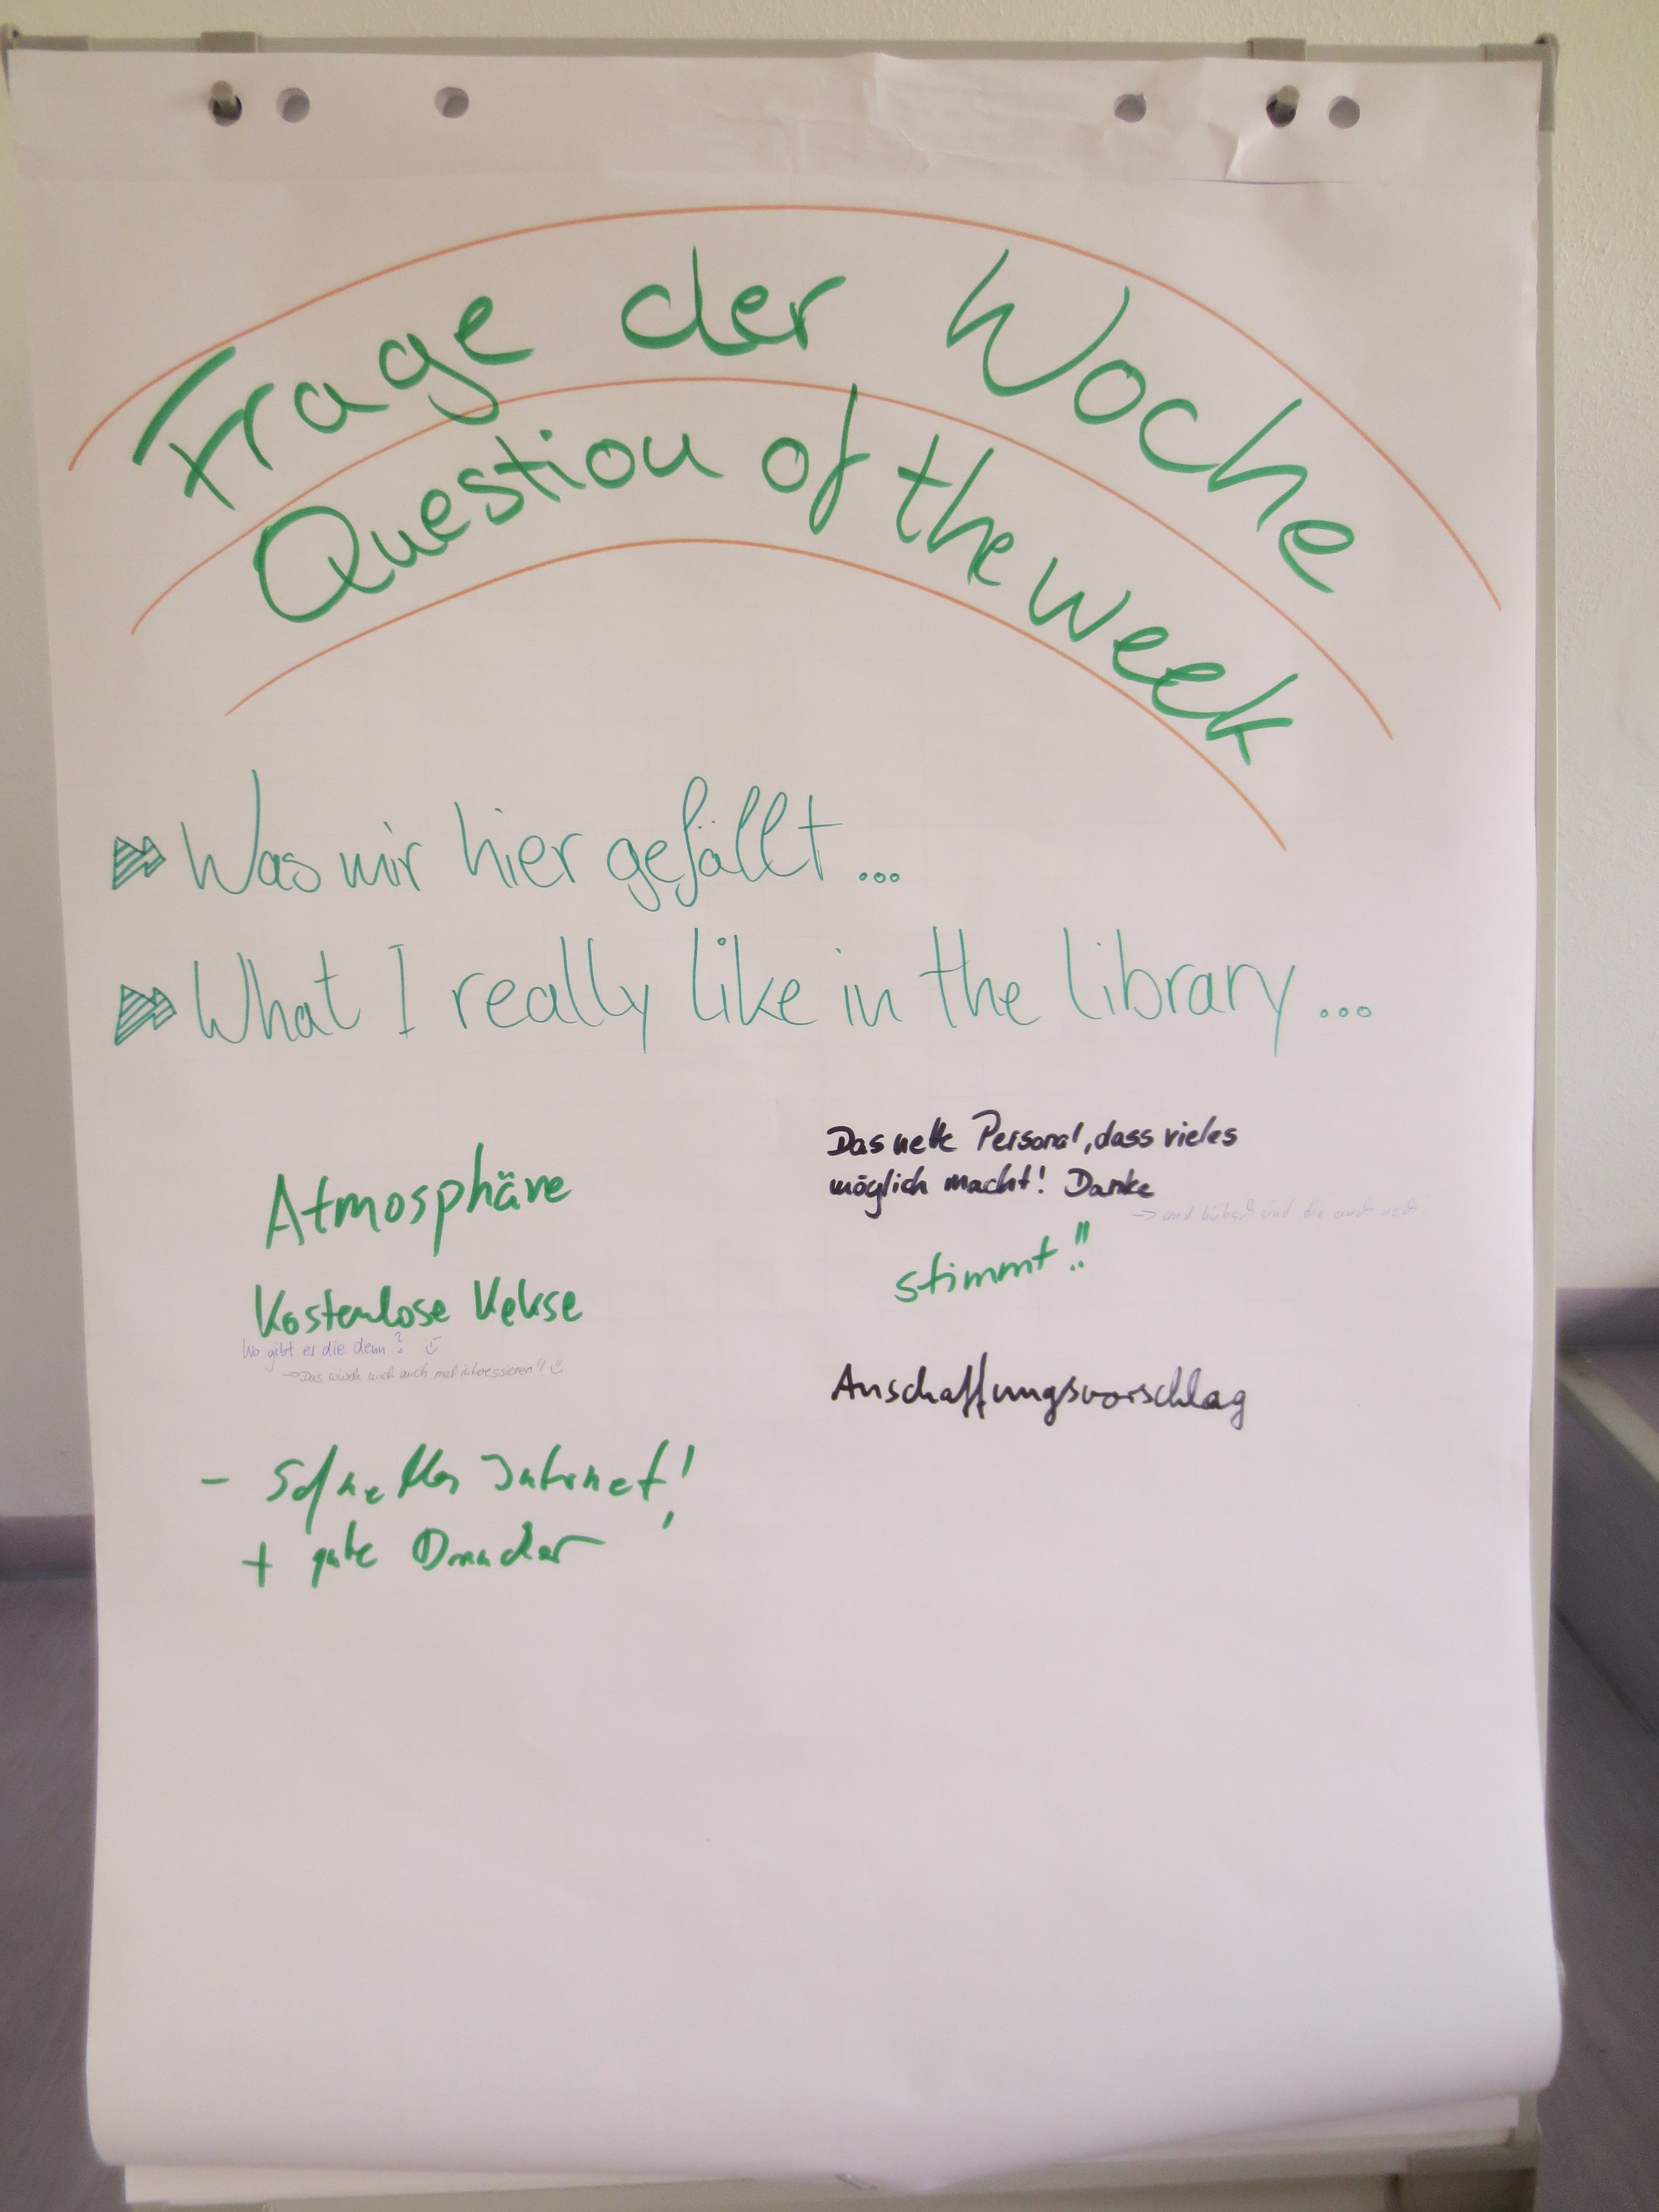 Frage der Woche
Question of the week
Was mir hier gefällt ...
What I really like in the library ...
Atmosphäre
Kostenlose Kekse
Wo gibt es die denn?
→ Das würde mich auch mal interessieren!!
- Schnelles Internet!
+ gute Drucker
Das nette Personal, dass vieles
möglich macht! Danke
→ und hübsch sind die auch noch
stimmt!!
Anschaffungsvorschlag